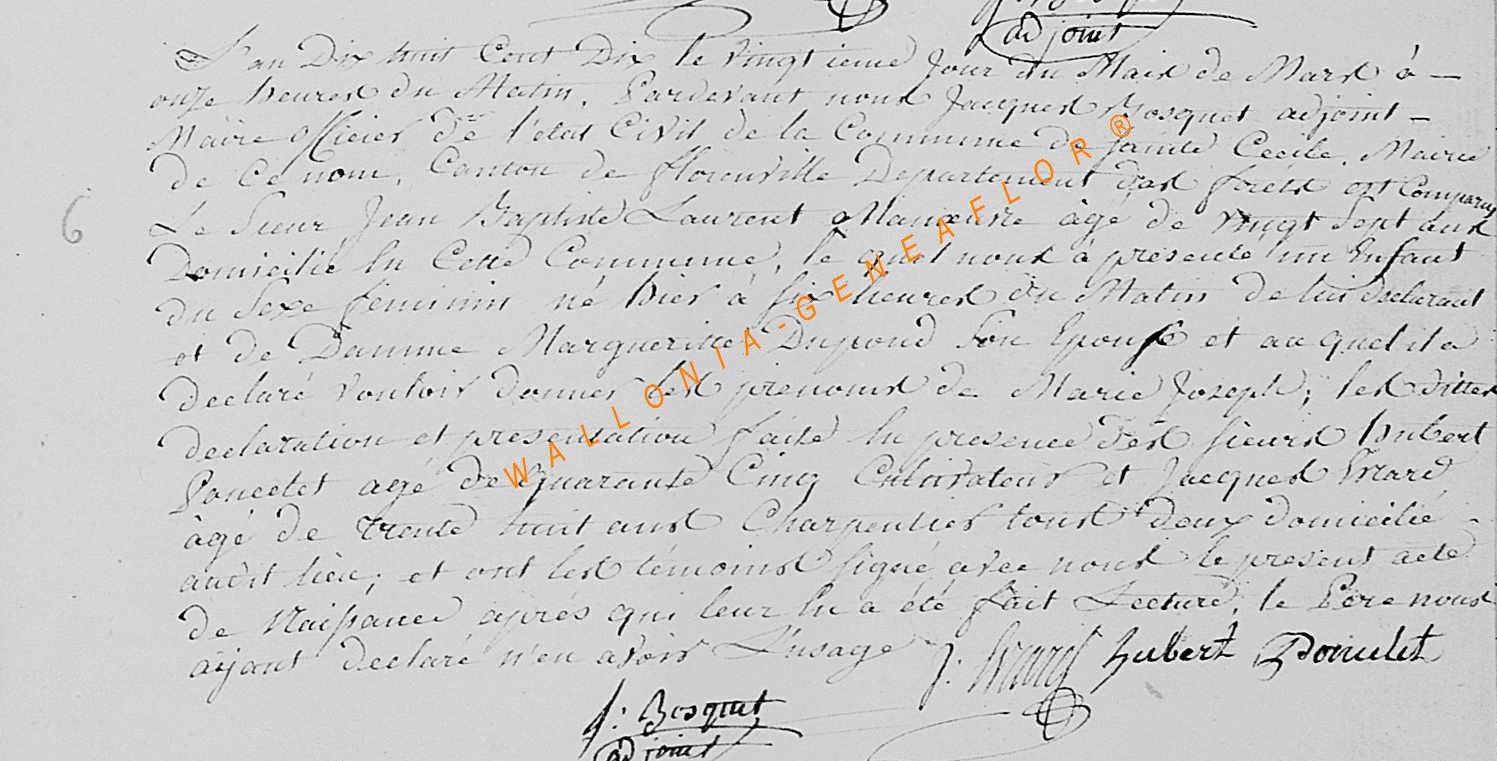 adjoint
L'an Dix huit Cent Dix le vingtieme Jour du Mois de Mars à —
onze heures du Matin. Pardevant nous Jacques Bosquet adjoint —
Maire officier de l'état Civil de la Commune de sainte Cecile, Mairie
de Ce nom, Canton de florenville Departement des forets est Comparus
6
Le Sieur Jean Baptiste Laurent Manœuvre âgé de vingt sept ans
Domicilié En Cette Commune, le quel nous à presenté un Enfant
du sexe feminin né hier à six heures du Matin de lui declarant
et de Damme Margueritte Dupond son Epouse et au quel il a
declaré vouloir donner les prenoms de Marie Joseph; les dittes
declaration et presentation faite En presence des sieurs hubert
Poncelet agé de quarante Cinq Cultivateur et Jacques
âgé de trente huit ans Charpentier tous deux domicilié -
audit lieu; et ont les témoins signé avec nous le present acte
de Naissance aprés qui leur En a été fait Lecture, le Pere nous
aÿant declaré n'en avoir L'usage
J: hubert Poncelet
J: Bosquet
adjoint
WALLONIA-GENEAFLOR®